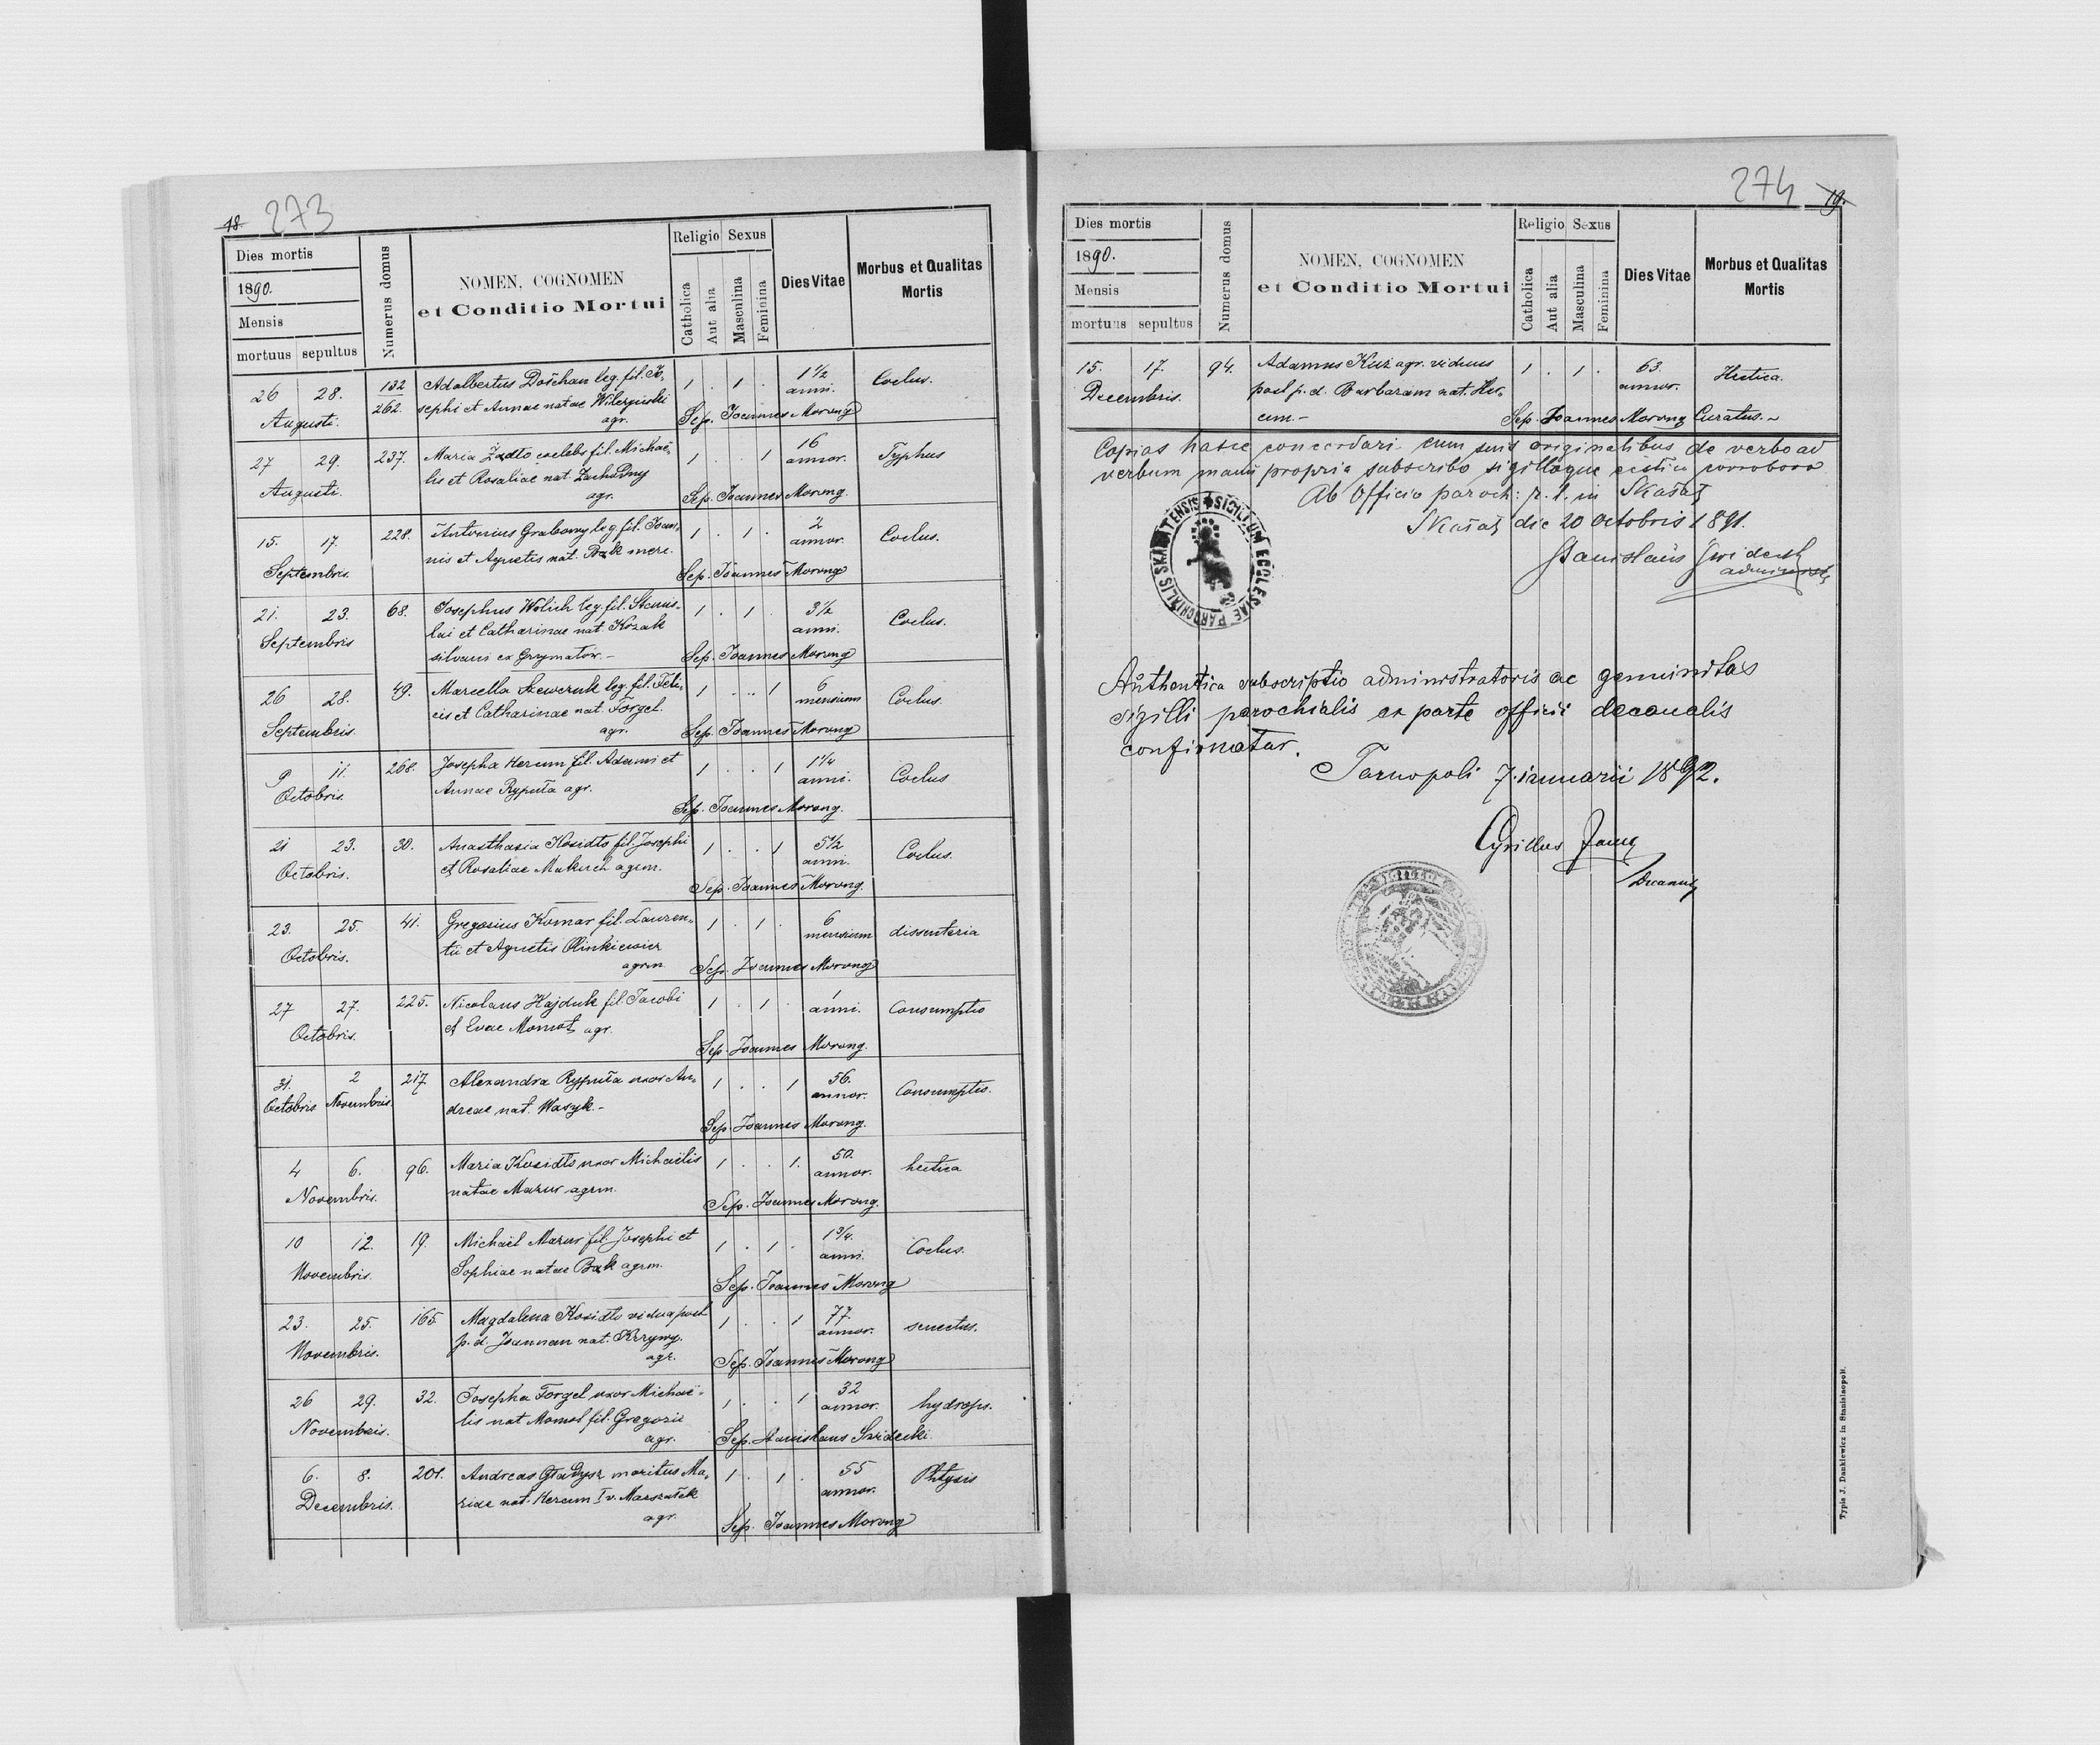 18. 273
Dies mortis
1890.
Mensis
mortuus sepultus
Numerus domus
NOMEN, COGNOMEN
et Conditio Mortui
Religio Sexus
Catholica
Aut alia
Masculina
Feminina
Dies Vitae
Morbus et Qualitas
Mortis
26 28. 132 Adalbertus Dośchan leg. fil. Jo, 1 . 1 . 1 1/2 Coclus.
Augusti. 262. sephi et Annae natae anni.
agr. Sep. Joannes Morong
27 29. 237. Maria Żądło caelebs fil. Michaë- 1 . . 1 16 Typhus
Augusti. lis et Rosaliae nat. annor.
agr. Sep. Joannes Morong.
15. 17. 228. Antonius Grabowy leg. fil. Joan, 1 . 1 . 2 Coclus.
Septembris. nis et Agnetis nat. Bąk merc. annor.
Sep. Joannes Morong
21. 23. 68. Josephus Wolich leg. fil. Stanis- 1 . 1 . 3 1/2 Coclus.
Septembris lai et Catharinae nat. Kozak anni.
silvani ex Grzymałow. - Sep. Joannes Morong
26 28. 49. Marcella Szewczuk leg. fil. Feli- 1 . . 1 6 Coclus.
Septembris. cis et Catharinae nat. Forgel. mensium
agr. Sep. Joannes Morong
9 11. 268. Josepha Hercun fil. Adami et 1 . . 1 1 1/4 Coclus
Octobris. Annae Ryputa agr. anni.
Sep. Joannes Morong.
21 23. 30. Anasthasia Kosidło fil. Josephi 1 . . 1 5 1/2 Coclus.
Octobris. et Rosaliae Makuch agrm. anni.
Sep. Joannes Morong.
23. 25. 41. Gregorius Komar fil. Lauren- 1 . 1 . 6 dissenteria
Octobris. tii et Agnetis Olinkiewicz mensium
agrm Sep. Joannes Morong
27 27. 225. Nicolaus Hajduk fil. Jacobi 1 . 1 . 1 Consumptio
Octobris. et Evae Momot agr. anni.
Sep. Joannes Morong.
31. 2 217 Alexandra Ryputa uxor An, 1 . . 1 56. Consumptio.
Octobris Novembris. dreae nat. Wasyk. - annor.
Sep. Joannes Morong.
4 6. 96. Maria Kosidło uxor Michaëlis 1 . . 1. 50. hectica
Novembris. natae Mazur agrm. annor.
Sep. Joannes Morong.
10 12. 19. Michaël Mazur fil. Josephi et 1 . 1 . 1 3/4. Coclus.
Novembris. Sophiae natae Bąk agrm. anni.
Sep. Joannes Morong
23. 25. 165 Magdalena Kosidło vidua post 1 . . 1 77. senectus.
Novembris. p. d. Joannem nat. Krzywy. annor.
agr. Sep. Joannes Morong
26 29. 32. Josepha Forgel uxor Michaë- 1 . . 1 32 hydrops.
Novembris. lis nat Momot fil. Gregorii annor.
agr. Sep. Stanislaus Świdecki
6. 8. 201. Andreas Gładysz maritus Ma, 1 . 1 . 55 Phtysis
Decembris. riae nat. Hercun I v. Marszałek annor.
agr. Sep. Joannes Morong
274 19.
Dies mortis
1890.
Mensis
mortuus sepultus
Numerus domus
NOMEN, COGNOMEN
et Conditio Mortui
Religio Sexus
Catholica
Aut alia
Masculina
Feminina
Dies Vitae
Morbus et Qualitas
Mortis
15. 17. 94. Adamus Kuź agr. viduus 1 . 1 . 63. Hectica.
Decembris. post p. d. Barbaram nat. Her- annor.
cun. - Sep. Joannes Morong Curatus. ~
Copias hasce concordari cum suis originalibus de verbo ad
verbum manu propria subscribo sigilloque roboro
Ab Officio paroch: r. l. in Skałat
Skałat die 20 octobris 1891.
Stanislaus Świdecki
administr
SIGILLUM ECCLESIAE PAROCHIALIS SKALATENSIS
Authentica subscriptio administratoris ac genuinitas
sigilli parochialis ex parte officii decanalis
confirmatur.
Tarnopoli 7. ianuarii 1892.
Cyrillus
Decanus
Typis J. Dankiewicz in Stanislaopoli.